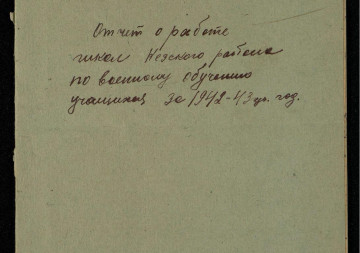 Отчет о работе
школ Кезского района
по военному обучению
учащихся за 1942-43 уч. год.